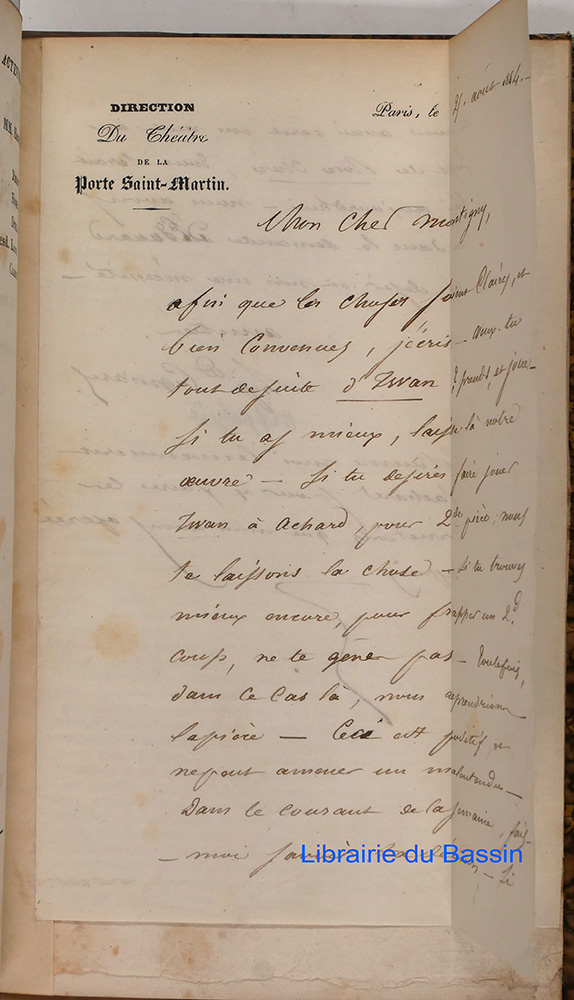 DIRECTION
Du Théâtre
DE LA
Porte Saint-Martin.
Paris, le 21. août 1844.—
Mon cher Montigny,
afin que les choses soient Claires, et
bien Convenues, j'écris — veux-tu
tout de suite d'Iwan ? prends, et joue —
Si tu as mieux, laisse là notre
œuvre — Si tu desires faire jouer
Iwan à Achard, pour 2de pièce, nous
te laissons la chose — Si tu trouves
mieux encore, pour frapper un 2d.
coup, ne te gêner pas — Toutefois,
dans ce cas là, nous reprendrions
la pièce — Ceci est positif, et
ne peut amener un malentendu —
Dans le courant de la semaine, fais
— moi savoir — Si
Librairie du Bassin
ACTEU
MM.